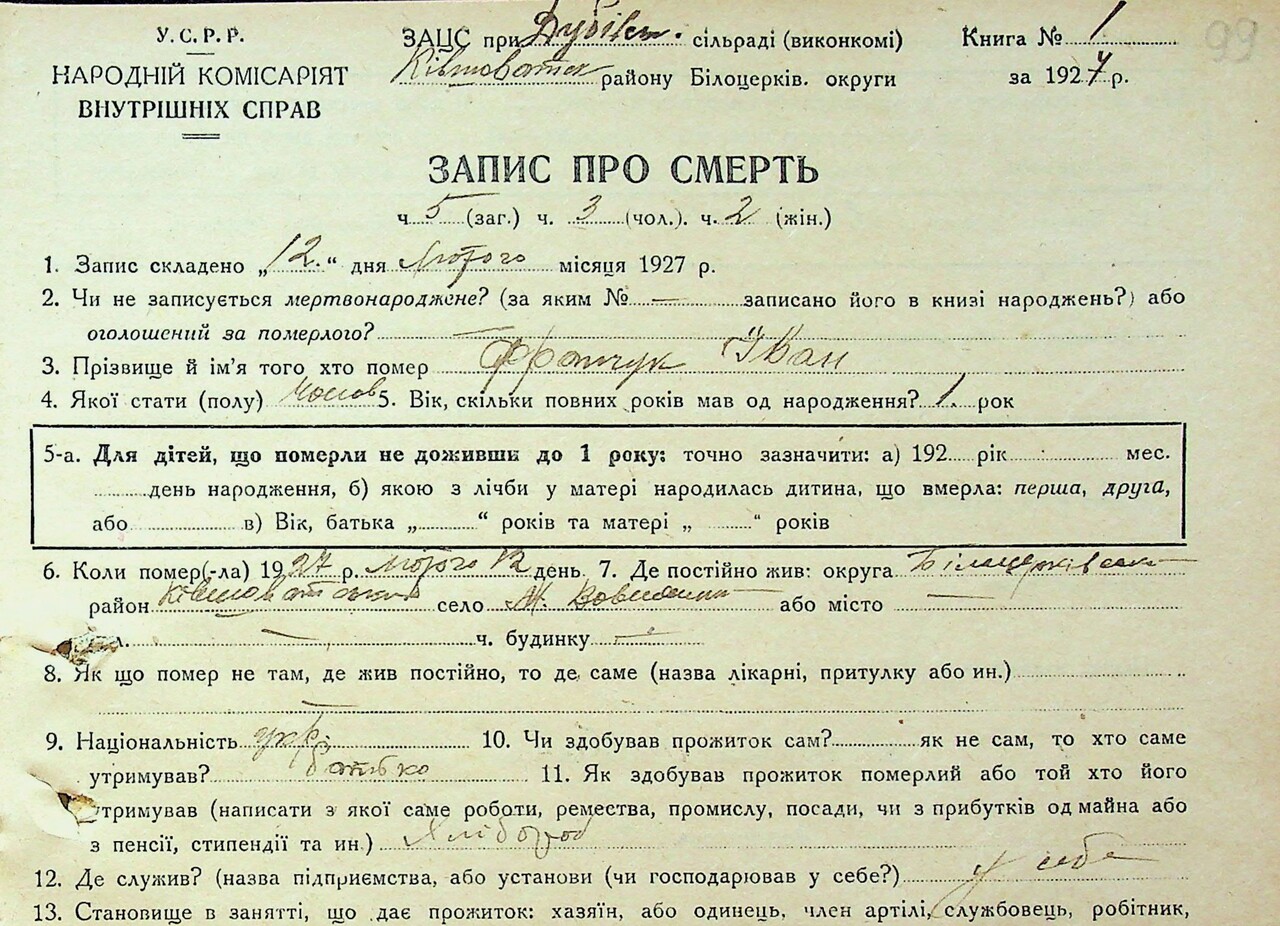 У.С.Р.Р.
НАРОДНІЙ КОМІСАРІЯТ
ВНУТРІШНІХ СПРАВ
ЗАЦС при Дубівец. сільраді (виконкомі)
району Білоцерків. округи
Книга № 1
за 1927 р.
99
ЗАПИС ПРО СМЕРТЬ
ч. 5 (заг.) ч. 3 (чол.). ч. 2 (жін.)
1. Запис складено „12.“ дня Лютого місяця 1927 р.
2. Чи не записується мертвонароджене? (за яким № — записано його в книзі народжень?) або
оголошений за померлого?
3. Прізвище й ім'я того хто помер Іван
4. Якої стати (полу) 5. Вік, скільки повних років мав од народження? 1. рок
5-а. Для дітей, що померли не доживши до 1 року: точно зазначити: а) 192 рік мес.
день народження, б) якою з лічби у матері народилась дитина, що вмерла: перша, друга,
або в) Вік, батька „ “ років та матері „ “ років
6. Коли помер(-ла) 1927 р. Лютого 12 день. 7. Де постійно жив: округа Білоцерківська
район село або місто —
ч. будинку —
8. Як що помер не там, де жив постійно, то де саме (назва лікарні, притулку або ин.)
9. Національність укр. 10. Чи здобував прожиток сам? як не сам, то хто саме
утримував? батько 11. Як здобував прожиток померлий або той хто його
утримував (написати з якої саме роботи, ремества, промислу, посади, чи з прибутків од майна або
з пенсії, стипендії та ин.) Хлібороб
12. Де служив? (назва підприємства, або установи (чи господарював у себе?) у себе
13. Становище в занятті, що дає прожиток: хазяїн, або одинець, член артілі, службовець, робітник,